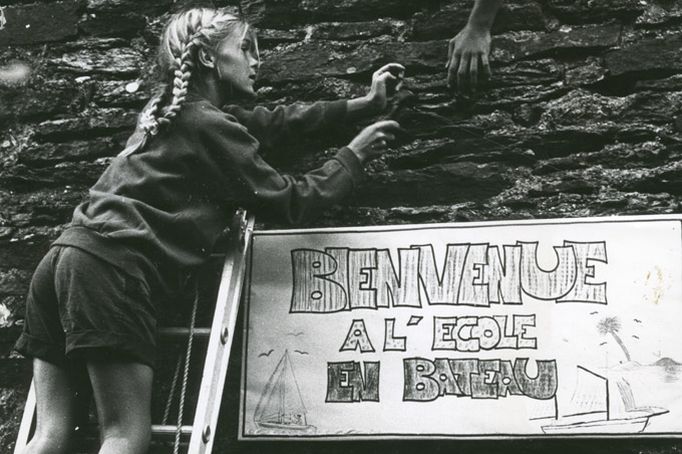 BIENVENUE
A L'ECOLE
EN BATEAU